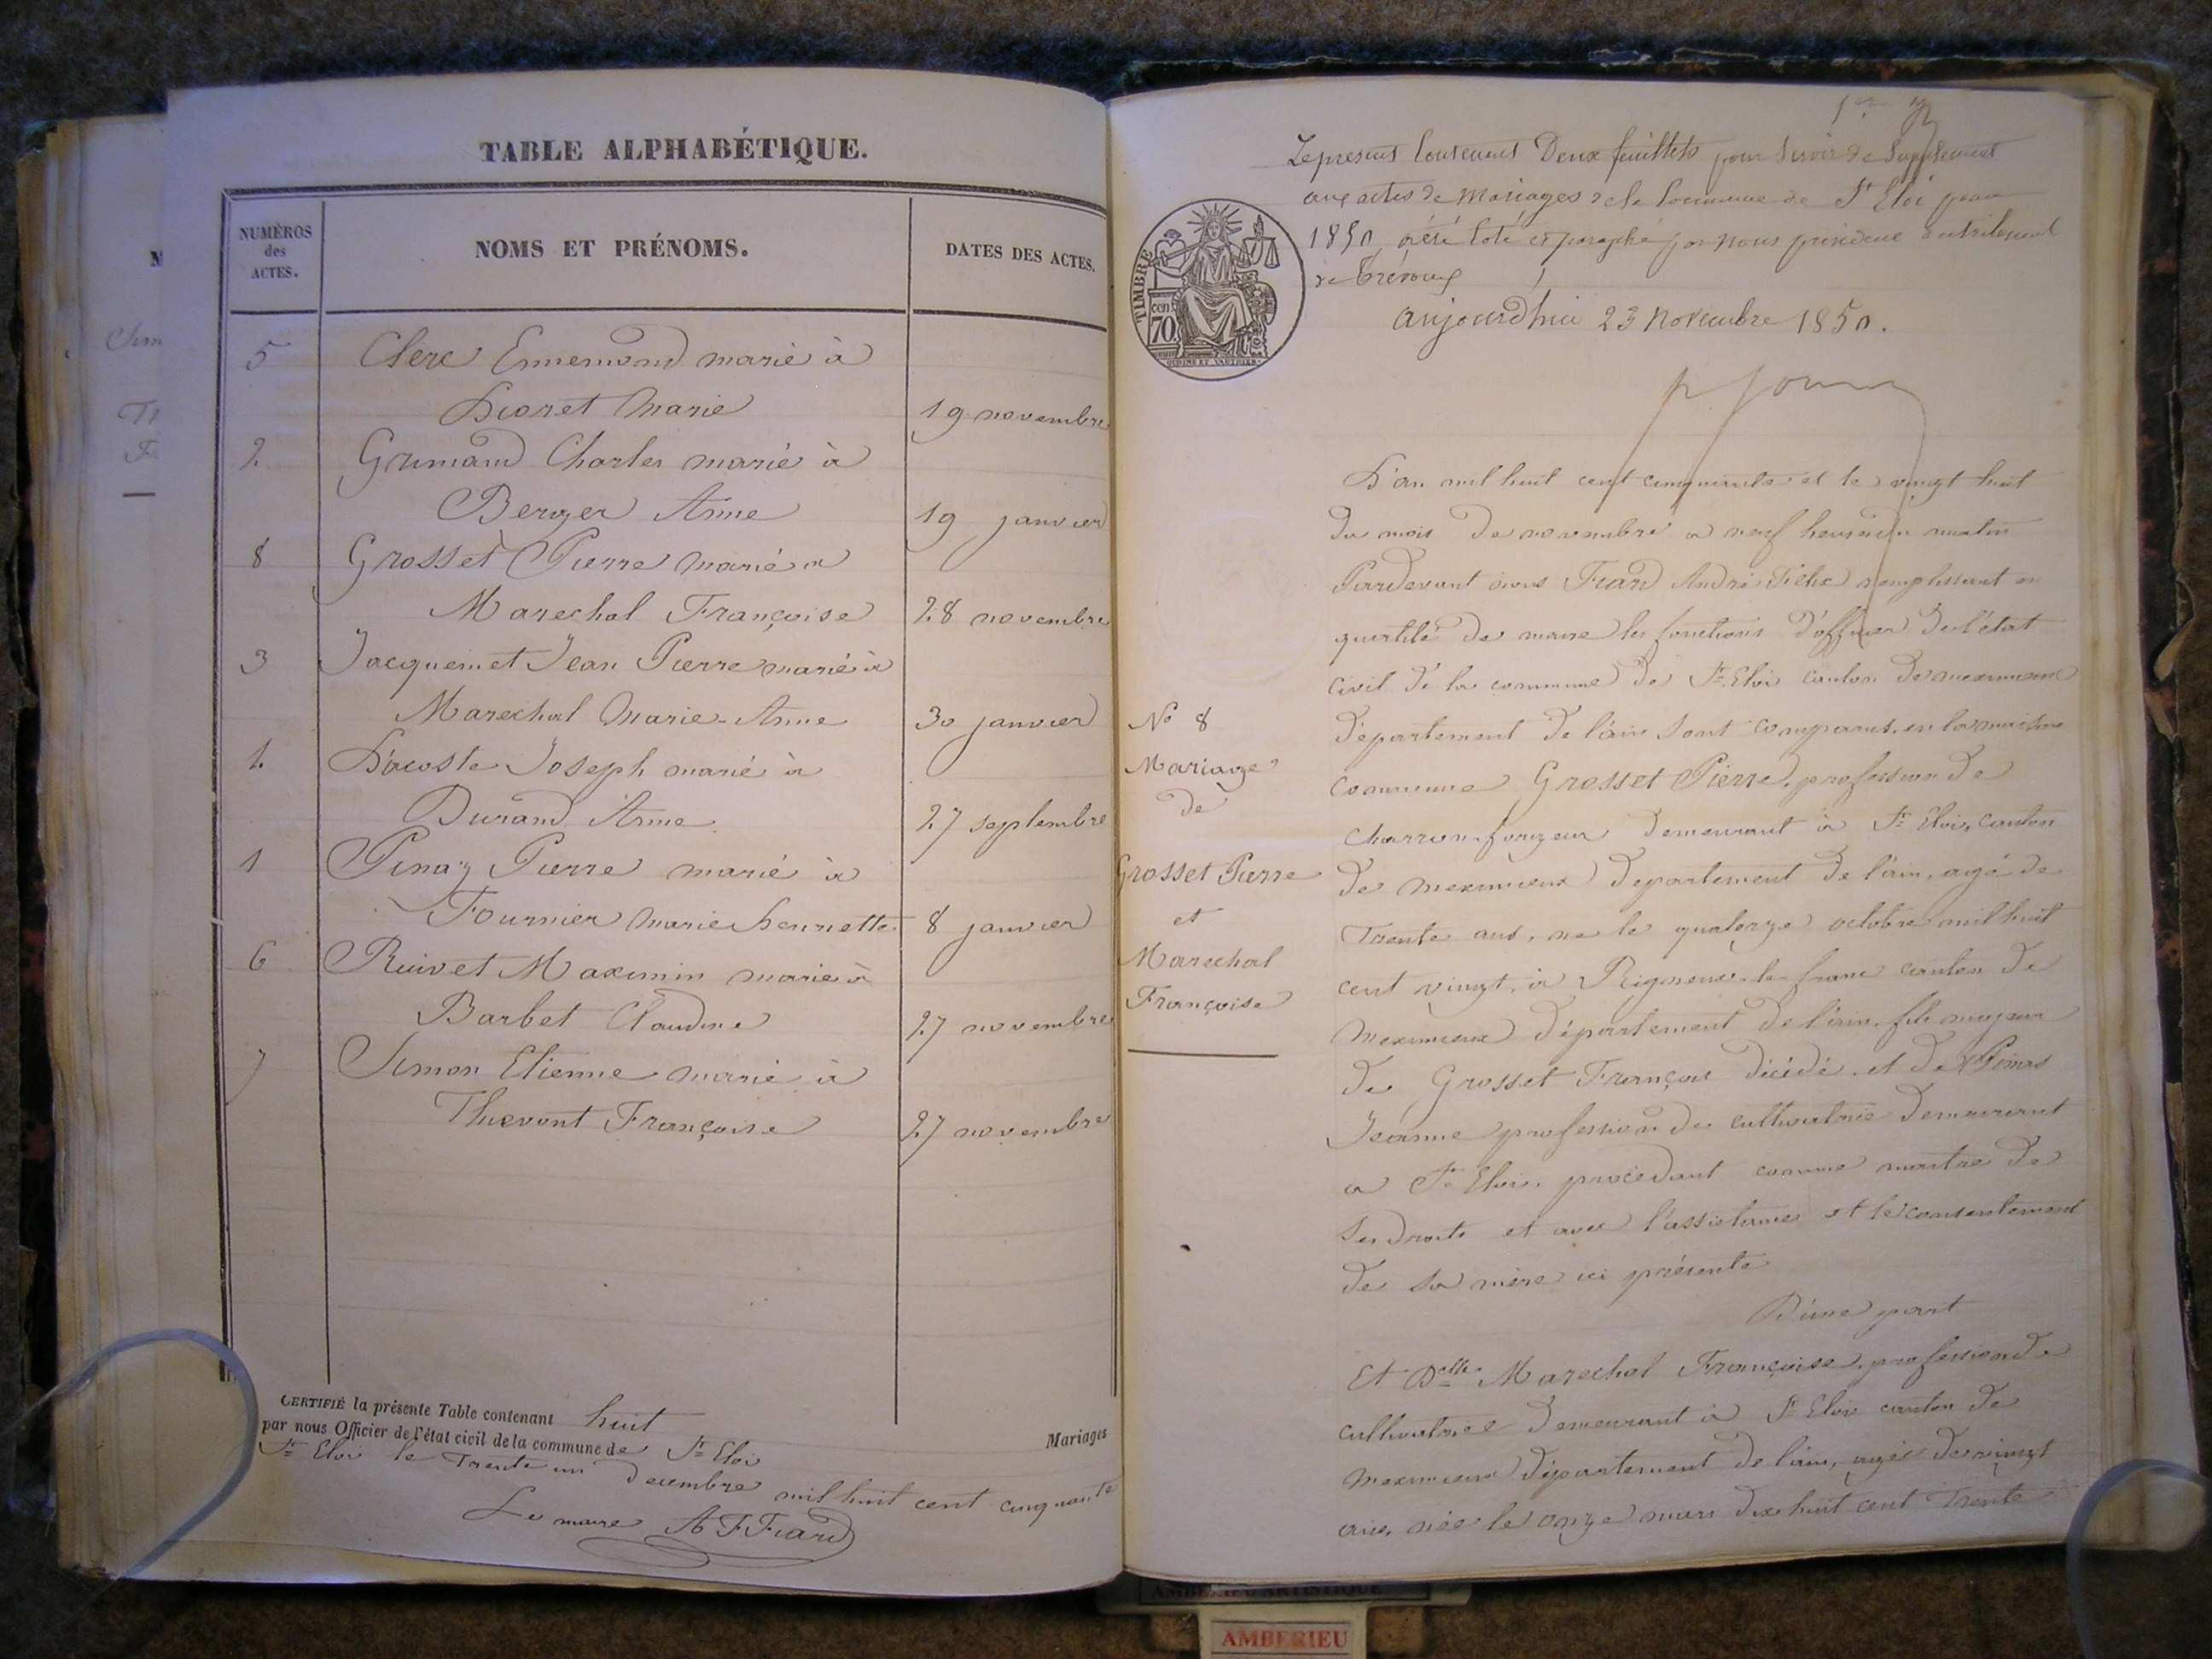 TABLE ALPHABÉTIQUE.
NUMÉROS
des
ACTES.
NOMS ET PRÉNOMS.
DATES DES ACTES.
5 Clerc Ennemond marié à
Marie 19 novembre
2 Grumaud Charles marié à
Berger Anne 19 janvier
8 Grosset Pierre marié à
Marechal Françoise 28 novembre
3 Jacquemet Jean Pierre marié à
Marechal Marie-Anne 30 janvier
Lacoste Joseph marié à
Durand Anne 27 septembre
1 Pinaz Pierre marié à
Fournier marie henriette 8 janvier
6 Ruivet Maximin marié à
Barbet Claudine 27 novembre
7 Simon Etienne marié à
Françoise 27 novembre
CERTIFIÉ la présente Table contenant huit
par nous Officier de l'état civil de la commune de St Eloi
St Eloi le Trente un Decembre mil huit cent cinquante
Le maire A F Fiard
Mariages
Deux feuillets pour servir de Supplement
aux actes de Mariages de la Commune de St Eloi pour
1850, a été coté et paraphé par nous président du tribunal
de Trévoux
aujourd'hui 23 Novembre 1850.
TIMBRE
70
cen
L'an mil huit cent cinquante et le vingt huit
du mois de novembre a neuf heures du matin
Pardevant nous Fiard André Félix remplissant en
qualité de maire les fonctions d'officier de l'état
civil de la commune de St Eloi canton de meximieux
département de l'ain sont comparus, en la maison
commune Grosset Pierre, profession de
charron-forgeur demeurant à St Eloi, canton
de meximieux departement de l'ain, agé de
Trente ans, ne le quatorze octobre mil huit
cent vingt, à Rigneux-le-franc canton de
meximieux département de l'ain, fils majeur
de Grosset François décédé et de Pinas
Jeanne profession de cultivatrice demeurant
a St Eloi, procedant comme maitre de
ses droits et avec l'assistance et le consentement
de sa mère ici présente
D'une part
Et Delle Marechal Françoise, profession de
cultivatrice demeurant à St Eloi canton de
meximieux département de l'ain, agée de vingt
ans, née le onze mars dix huit cent Trente
No 8
Mariage
de
Grosset Pierre
et
Marechal
Françoise
AMBERIEU ARTISTIQUE
AMBERIEU